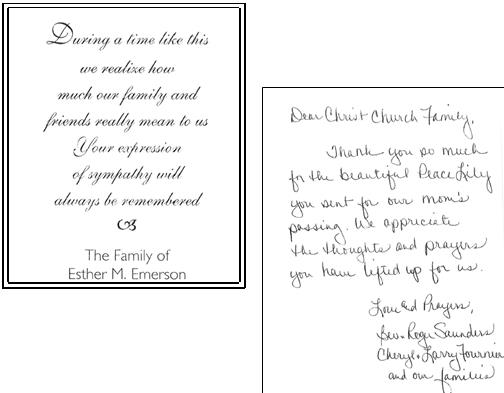 During a time like this
we realize how
much our family and
friends really mean to us
Your expression
of sympathy will
always be remembered
The Family of
Esther M. Emerson
Dear Christ Church Family,
Thank you so much
for the beautiful Peace Lily
you sent for our mom's
passing. We appreciate
the thoughts and prayers
you have lifted up for us.
Love and Prayers,
Rev. Roger Saunders
Cheryl & Larry Fournier
and our families